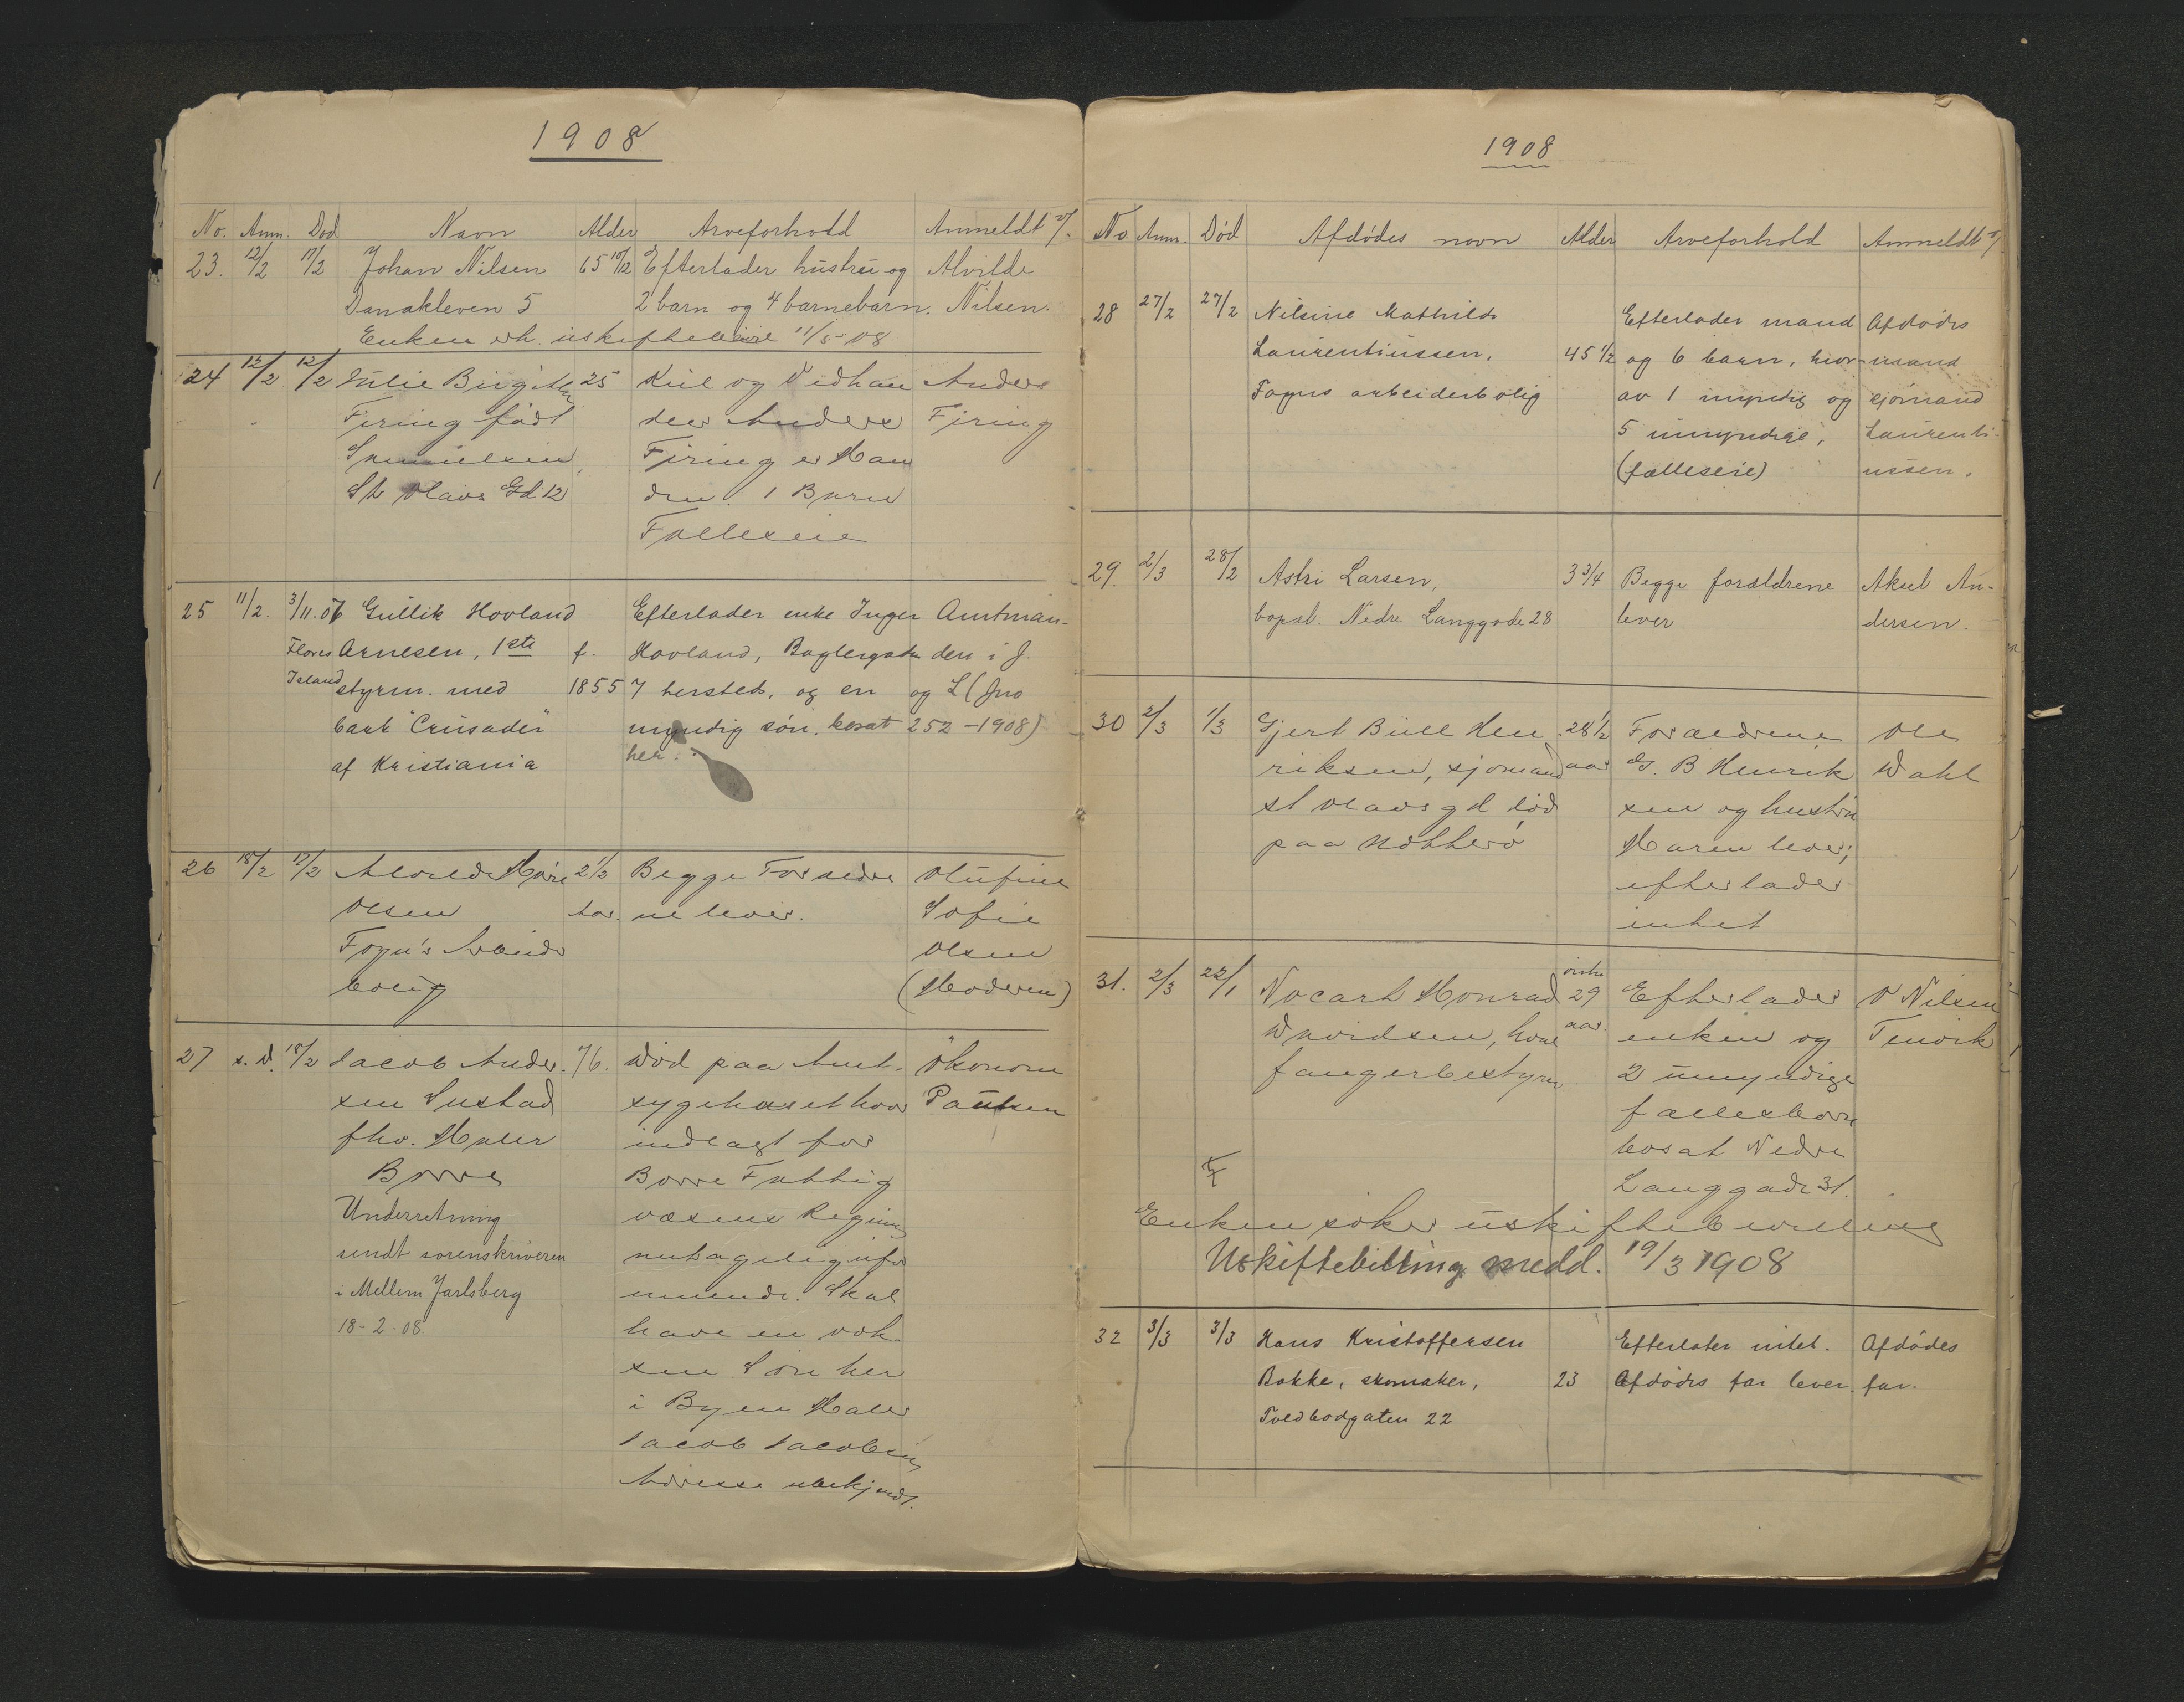 1908
No. Anm. Død Navn Alder Arveforhold Anmeldt v/.
23. 12/2 11/2 Johan Nilsen 65 10/12 Efterlader hustru og Alvilde
Danakleven 5 2 barn og 4 barnebarn. Nilsen.
Enken erh. uskiftebev. 11/5-08
24 12/2 12/2 Julie Birgitte 25 Anders
Firing født Anders Firing
Samuelsen Firing er Man
St Olavs Gd 12 den. 1 Barn
Fælleseie
25 11/2. 3/11.07 Gullik Hovland Efterlader enke Inger Amtman-
Flores Arnesen, 1ste f. Hovland, Baglergaten den i J.
Island styrm. med 1855 7 hersteds, og en og L (Jno
bark "Crusader" myndig søn. bosat 252-1908)
af Kristiania her.
26 18/2 17/2 2 1/2 Begge Foræ ldre Olufine
Olsen Aar. ne lever. Sofie
Foyn's Arbeider Olsen
bolig (Moderen)
27 s. d. 18/2 Jacob Ander- 76. Død paa Amt- Økonom
sen Sustad sygehuset hvor Paulsen
fhv. Maler indlagt for
Borre Borre Fattig
Underretning væsens Regning
sendt sorenskriveren
i Mellem Jarlsberg Skal
18-2-08. have en vok-
sen Søn her
i Byen Maler
Jacob Jacobsen
Adresse ubekjendt.
1908
No Anm. Død Afdødes navn Alder Arveforhold Anmeldt v/
28 27/2 27/2 Nilsine Mathilde Efterlader mand Afdødes
Laurentiussen. 45 1/2 og 6 barn, hvor- mand
Foyns arbeiderbolig av 1 myndig og sjømand
5 umyndige, Laurenti-
(fælleseie) ussen.
29. 2/3 28/2 Astri Larsen, 3 3/4 Begge forældrene Aksel An-
bopæl. Nedre Langgade 28 lever dersen.
30 2/3 1/3 Gjert Bull Hen- 28 1/2 Forældrene Ole
riksen, sjømand aar G. B Henrik Wahl
st Olavs gd død sen og hustru
paa Nøtterø Maren lever;
efterlader
intet
31. 2/3 22/1 Monrad 29 Efterlader O Nilsen
hval aar enken og Tenvik
fangerbestyrer 2 umyndige
fællesbarn
bosat Nedre
Langgade 31.
Enken søker uskiftebevilling
Uskiftebilling medd. 19/3 1908
32 3/3 3/3 Hans Kristoffersen Efterlater intet. Afdødes
Bakke, skomaker, 23 Afdødes far lever. far.
Toldbodgaten 22